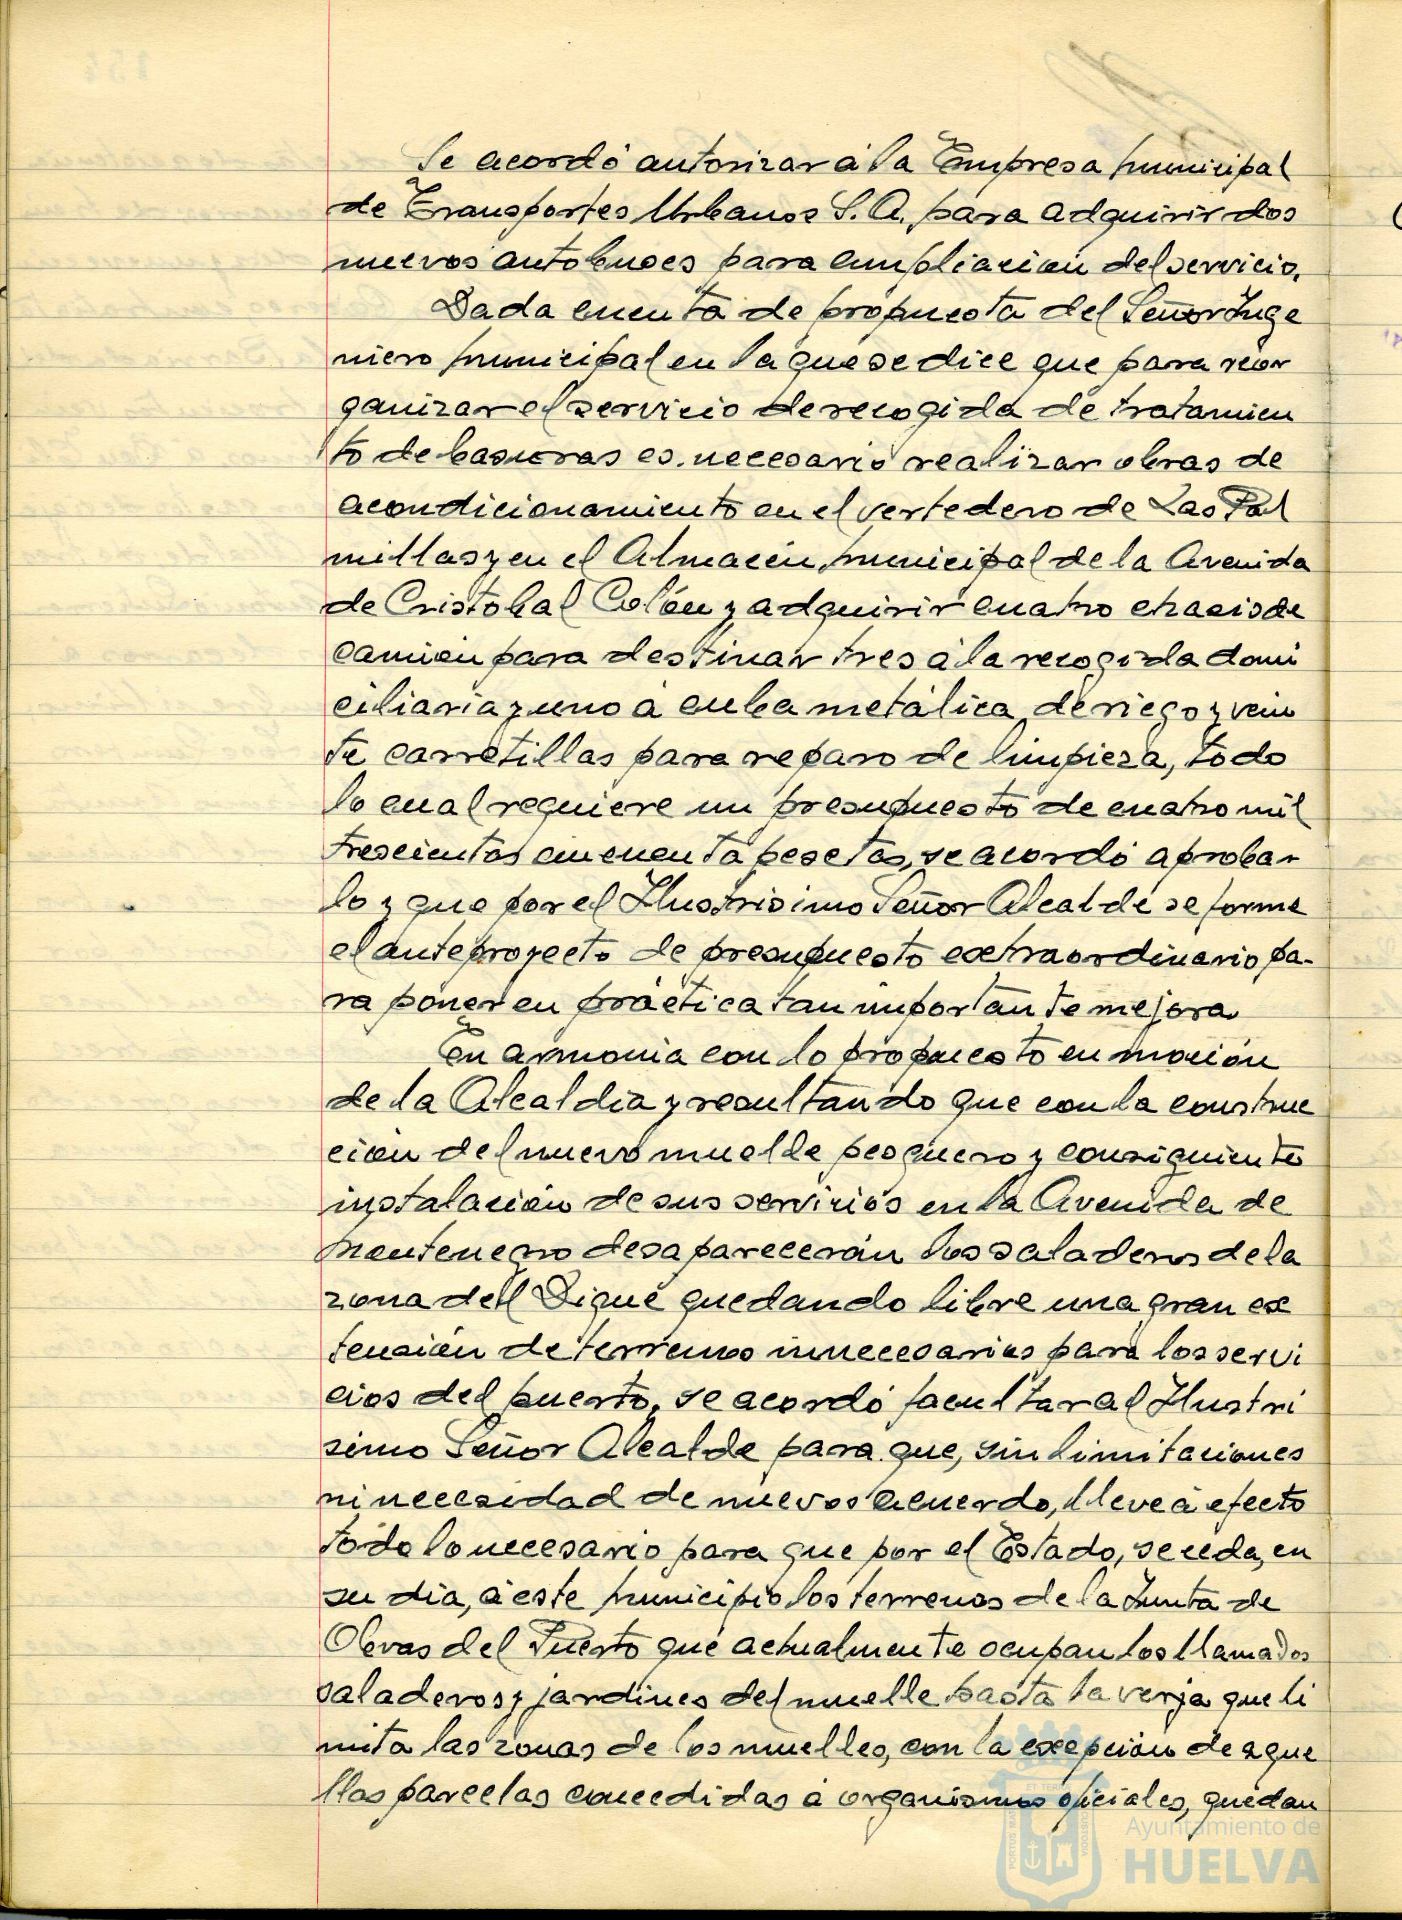 Se acordó autorizar á la Empresa municipal
de Transportes Urbanos S. A. para adquirir dos
nuevos autobuses para ampliación del servicio.
Dada cuenta de propuesta del Señor Inge
niero municipal en la que se dice que para reor
ganizar el servicio de recogida de tratamien
to de basuras es necesario realizar obras de
acondicionamiento en el vertedero de Las Pal
millas y en el Almacén municipal de la Avenida
de Cristobal Colón y adquirir cuatro chasis de
camión para destinar tres á la recogida domi
ciliaria y uno á cuba metálica de riego y vein
te carretillas para reparo de limpieza, todo
lo cual requiere un presupuesto de cuatro mil
trescientas cincuenta pesetas, se acordó aprobar
lo y que por el Ilustrisimo Señor Alcalde se forme
el anteproyecto de presupuesto extraordinario pa-
ra poner en práctica tan importante mejora.
En armonia con lo propuesto en moción
de la Alcaldia y resultando que con la construc
ción del nuevo muelle pesquero y consiguiente
instalación de sus servicios en la Avenida de
Montenegro desaparecerán los saladeros de la
zona del Dique quedando libre una gran ex
tensión de terrenos innecesarios para los servi
cios del puerto, se acordó facultar al Ilustri
simo Señor Alcalde para que, sin limitaciones
ni necesidad de nuevos acuerdo, lleve á efecto
todo lo necesario para que por el Estado, se ceda, en
su dia, á este municipio los terrenos de la Junta de
Obras del Puerto que actualmente ocupan los llamados
saladeros y jardines del muelle hasta la verja que li
mita las zonas de los muelles, con la excepción de aque
llas parcelas concedidas á organismos oficiales, quedan
Ayuntamiento de
HUELVA